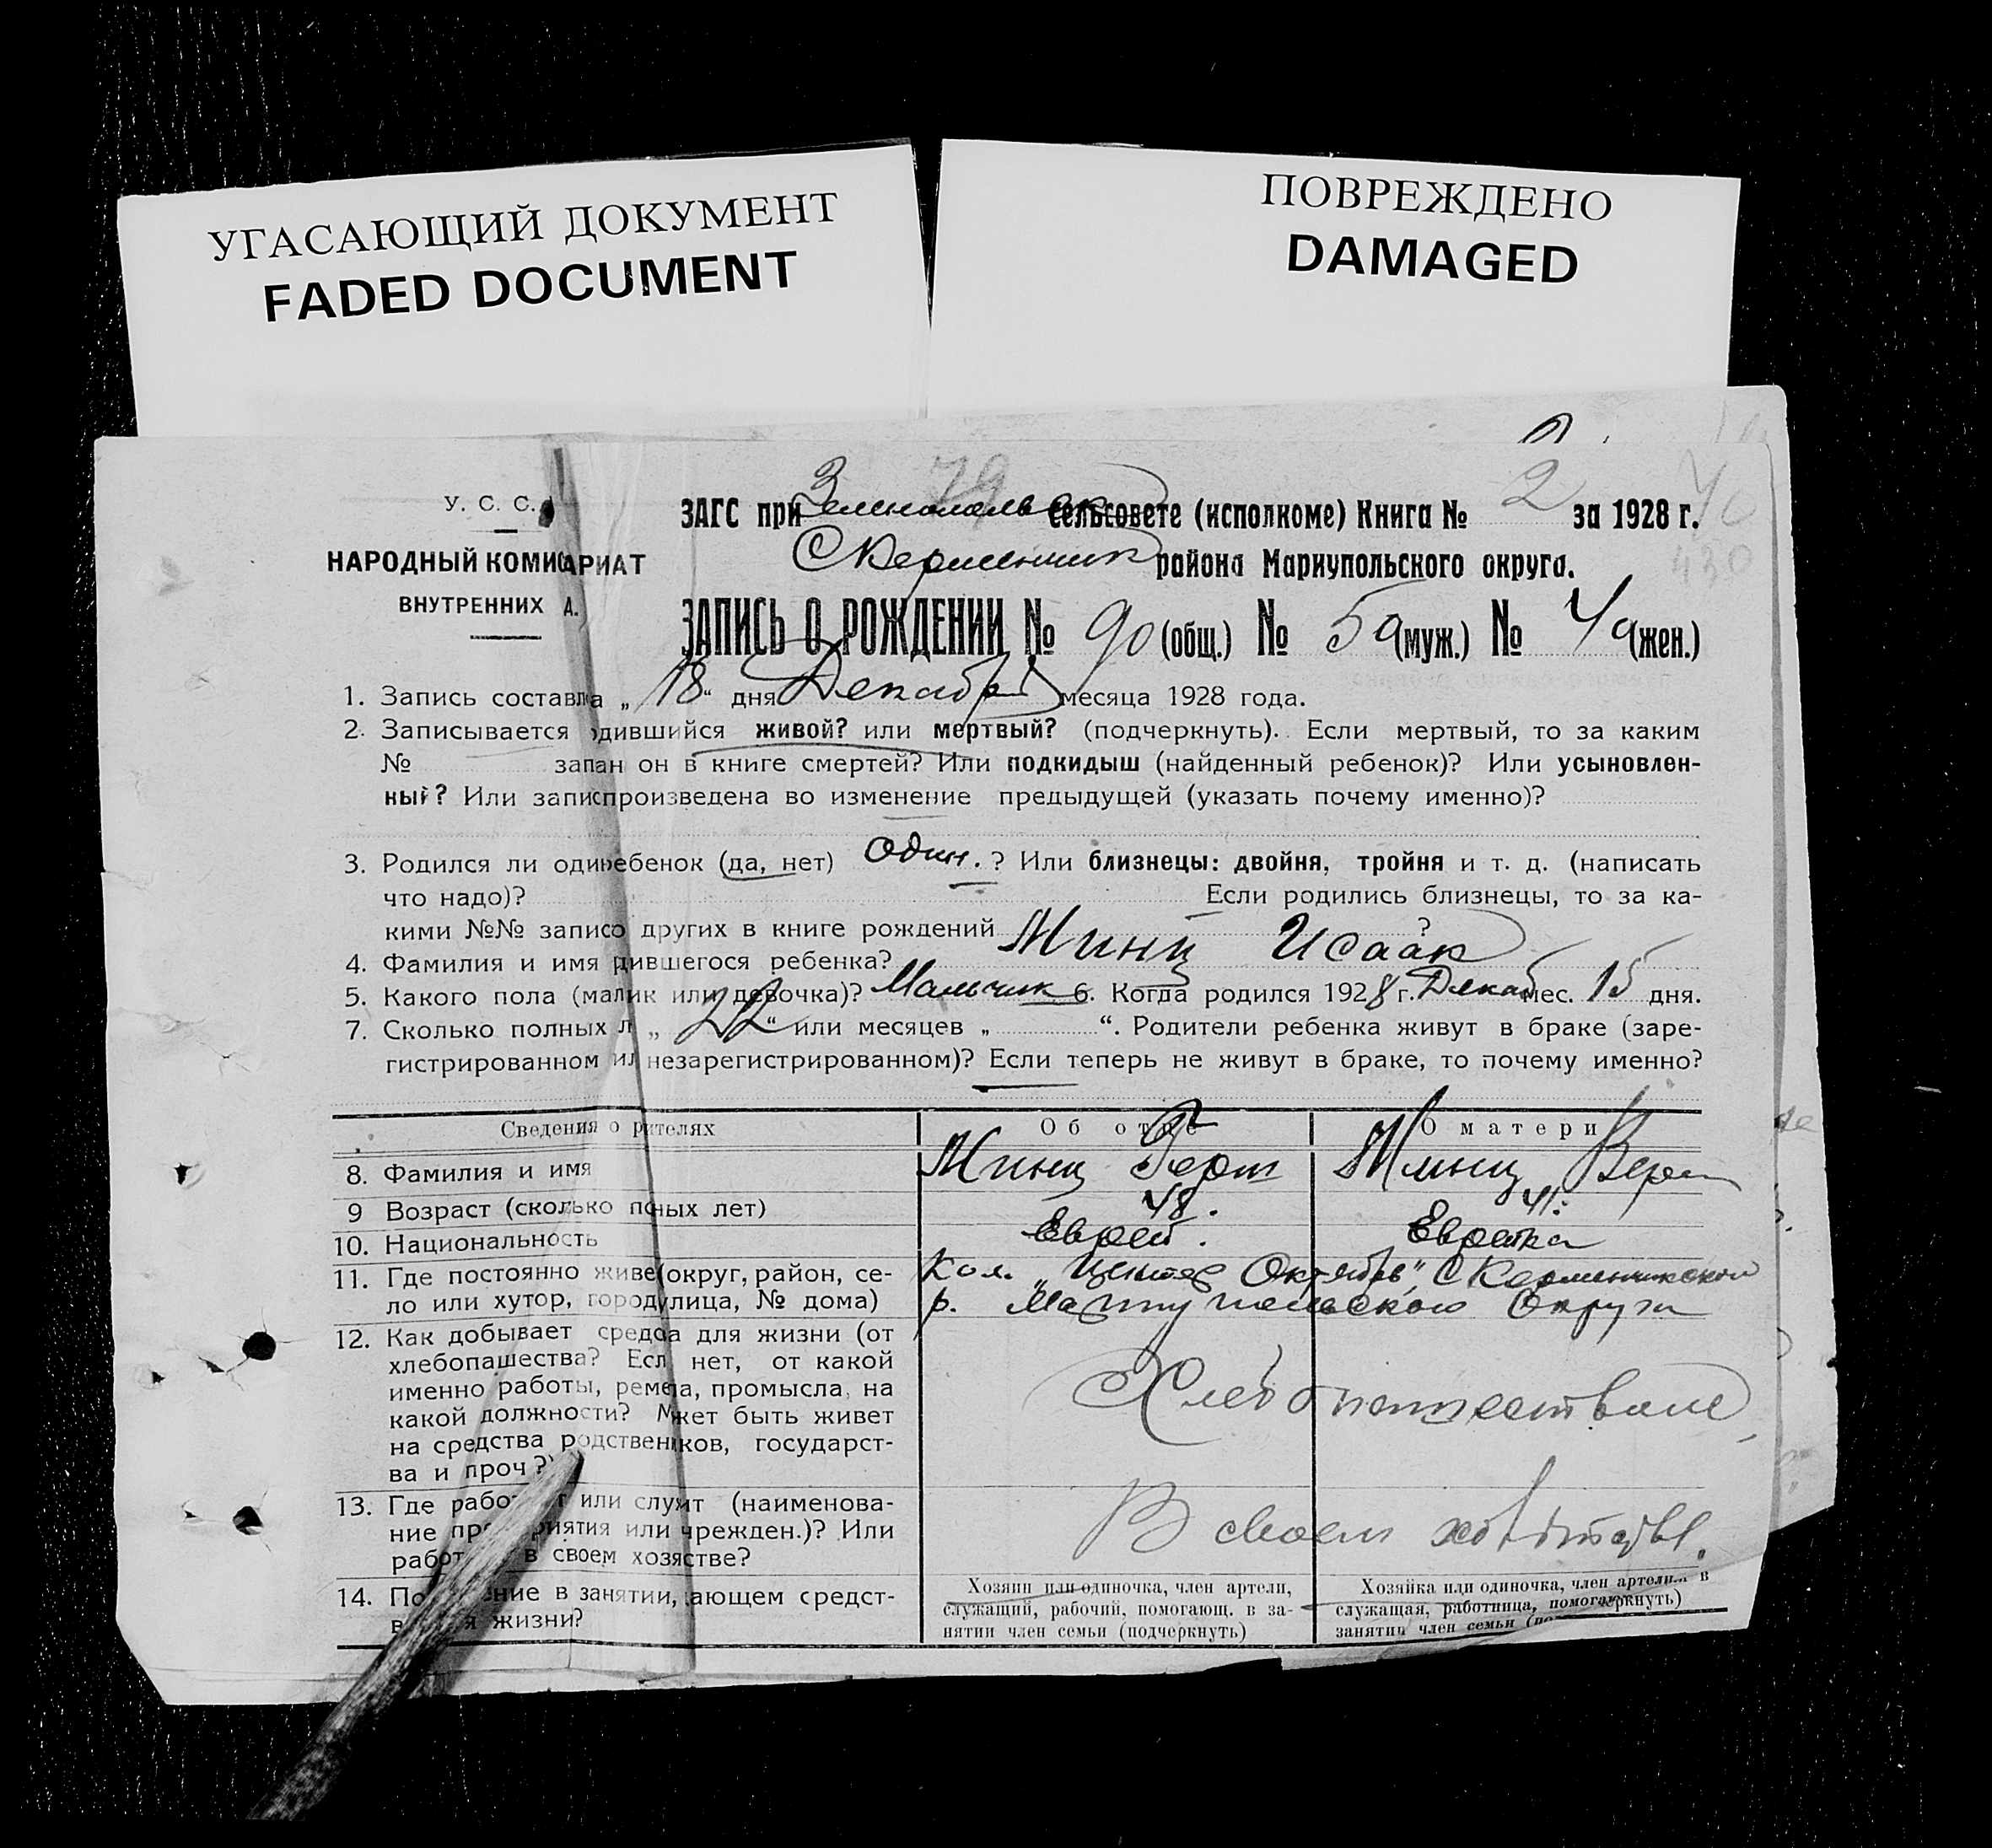 УГАСАЮЩИЙ ДОКУМЕНТ
FADED DOCUMENT
ПОВРЕЖДЕНО
DAMAGED
У. С. С.
НАРОДНЫЙ КОМИ АРИАТ
ВНУТРЕННИХ Д.
79
ЗАГС при сельсовете (исполкоме) Книга № 2 за 1928 г.
района Мариупольского округа.
430
ЗАПИСЬ О РОЖДЕНИИ № 90 (общ.) № 50 (муж.) № 40 (жен.)
1. Запись составл а „ 18 “ дня Декабря месяца 1928 года.
2. Записывается дившийся живой? или мертвый? (подчеркнуть). Если мертвый, то за каким
№ запан он в книге смертей? Или подкидыш (найденный ребенок)? Или усыновлен-
ный? Или запис произведена во изменение предыдущей (указать почему именно)?
3. Родился ли оди ребенок (да, нет) один. ? Или близнецы: двойня, тройня и т. д. (написать
что надо)? Если родились близнецы, то за ка-
кими №№ записо других в книге рождений ?
4. Фамилия и имя дившегося ребенка? Минц Исаак
5. Какого пола (мал ик или девочка)? Мальчик 6. Когда родился 1928 г. Декаб мес. 15 дня.
7. Сколько полных л „ 22 “ или месяцев „ “. Родители ребенка живут в браке (заре-
гистрированном ил незарегистрированном)? Если теперь не живут в браке, то почему именно?
Сведения о р ителях Об отце О матери
8. Фамилия и имя Минц Герш Минц Вера
9 Возраст (сколько по ных лет) 48. 41.
10. Национальность Еврей. Еврейка
11. Где постоянно живе (округ, район, се- Кол. Октябрь",
ло или хутор, город улица, № дома) р. Мариупольского Округа
12. Как добывает средс а для жизни (от
хлебопашества? Есл нет, от какой
именно работы, реме а, промысла, на Хлебопашеством
какой должности? М жет быть живет
на средства родствен ков, государст-
ва и проч?)
13. Где рабо т или слу ит (наименова-
ние пр приятия или чрежден.)? Или В своем хозяйстве.
работ в своем хозя стве?
14. По ение в занятии, ающем средст-
в я жизни?
Хозяин или одиночка, член артели,
служащий, рабочий, помогающ. в за-
нятии член семьи (подчеркнуть)
Хозяйка или одиночка, член артели в
служащая, работница, помогаю еркнуть)
занятии член семьи (по